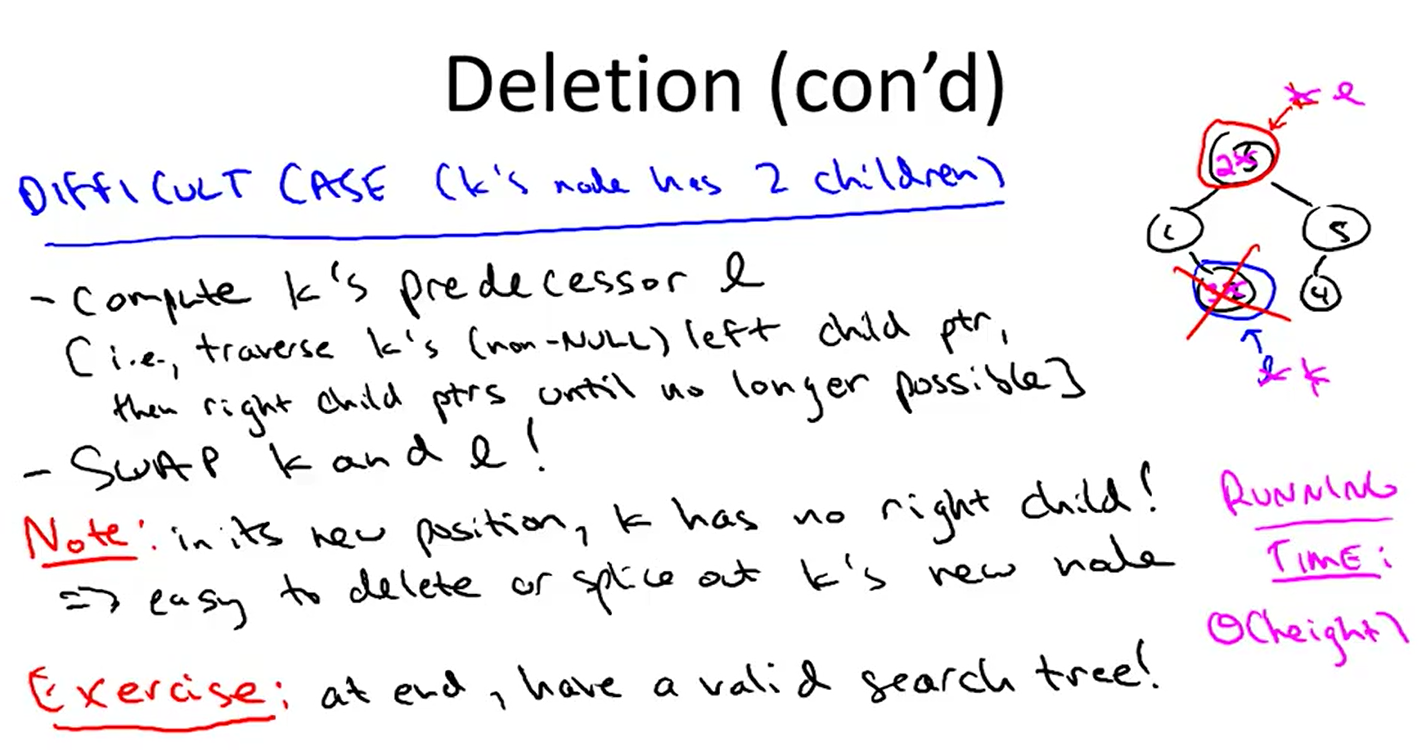 Deletion (con’d)
DIFFICULT CASE (k's node has 2 children)
- Compute k's predecessor l
[i.e., traverse k's (non-NULL) left child ptr,
then right child ptrs until no longer possible]
- SWAP k and l !
Note: in its new position, k has no right child!
=> easy to delete or splice out k's new node
Exercise: at end, have a valid search tree!
l
2
1
5
4
k
RUNNING
TIME:
Θ(height)